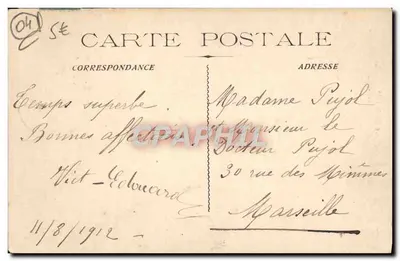 04 5€
CARTE POSTALE
CORRESPONDANCE
ADRESSE
Temps superbe.
Bonnes affections
Vict-Edouard
11/8/1912
CPAPHIL
Madame Pujol
Monsieur le
Docteur Pujol
30 rue des Minimes
Marseille